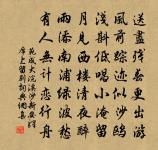 送盡殘春更出游
風前踪迹似沙鷗
淺斟低唱小淹留
月見西樓清夜醉
雨添南浦綠波愁
有人無計戀行舟
范成大浣溪沙新安驛
席上留別詞典網集